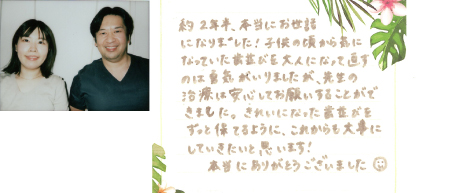 約2年半、本当にお世話
になりました！子供の頃から気に
なっていた歯並びを大人になって直す
のは勇気がいりましたが、先生の
治療は安心してお願いすることがで
きました。きれいになった歯並びを
ずっと保てるように、これからも大事に
していきたいと思います！
本当にありがとうございました☺